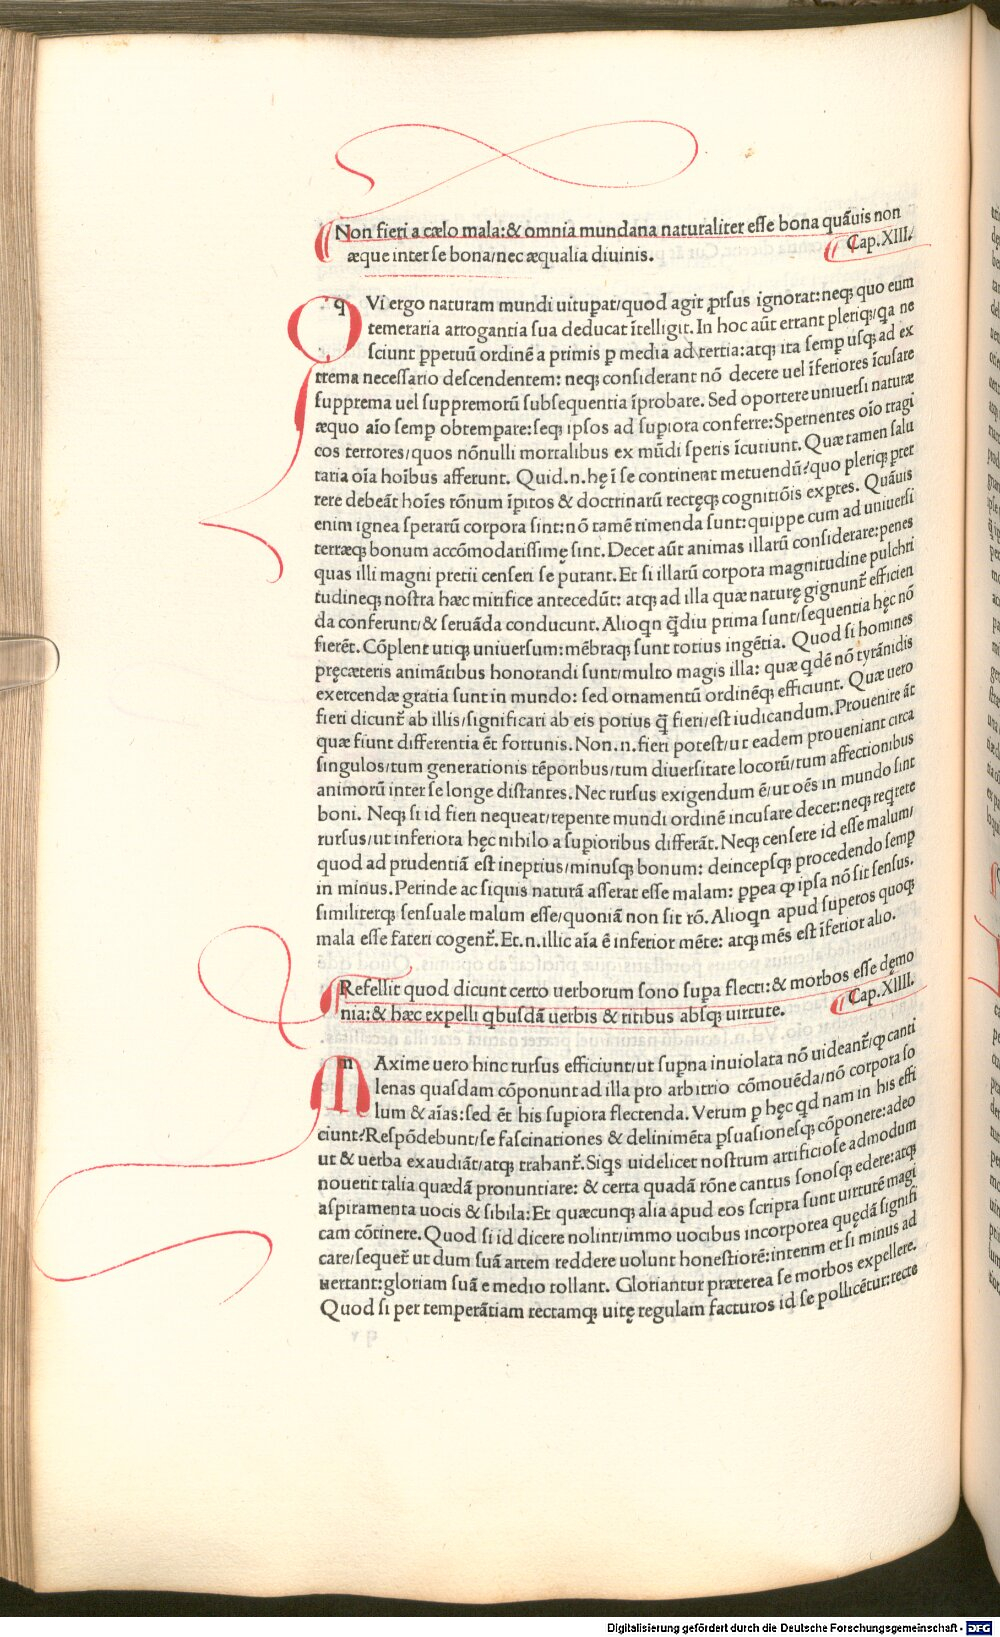 Non fieri a cælo mala:& omnia mundana naturaliter esse bona quãuis non
æque inter se bona/nec æqualia diuinis. Cap.XIII.
q Vi ergo naturam mundi uitupat/quod agit prsus ignorat:neq; quo eum
temeraria arrogantia sua deducat ĩtelligit. In hoc aũt errant pleriq;/qa ne
sciunt ppetuũ ordinẽ a primis p media ad tertia:atq; ita semp usq; ad ex
trema necessario descendentem: neq; considerant nõ decere uel ĩferiores ĩcusare
supprema uel suppremorũ subsequentia ĩprobare. Sed oportere uniuersi naturæ
æquo aĩo semp obtempare:seq; ipsos ad supiora conferre:Spernentes oĩo tragi
cos terrores/quos nõnulli mortalibus ex mũdi speris ĩcutiunt. Quæ tamen salu
taria oĩa hoĩbus afferunt. Quid.n.hę ĩ se continent metuendũ?quo pleriq; pret
rere debeãt hoĩes rõnum ĩpitos & doctrinarũ rectęq; cognitiõis exptes. Quãuis
enim ignea sperarũ corpora sint:nõ tamẽ timenda sunt:quippe cum ad uniuersi
terræq; bonum accõmodatissimę sint. Decet aũt animas illarũ considerare:penes
quas illi magni pretii censeri se putant. Et si illarũ corpora magnitudine pulchri
tudineq; nostra hæc mirifice antecedũt: atq; ad illa quæ naturę gignunt̃ efficien
da conferunt/& seruãda conducunt. Alioqn q̃diu prima sunt/sequentia hęc nõ
fierẽt. Cõplent utiq; uniuersum:mẽbraq; sunt totius ingẽtia. Quod si homines
pręcæteris animãtibus honorandi sunt/multo magis illa: quæ qdẽ nõ tyrãnidis
exercendæ gratia sunt in mundo: sed ornamentũ ordinẽq; efficiunt. Quæ uero
fieri dicunt̃ ab illis/significari ab eis potius q̃ fieri/est iudicandum. Prouenire ãt
quæ fiunt differentia ẽt fortunis. Non.n.fieri potest/ut eadem proueniant circa
singulos/tum generationis tẽporibus/tum diuersitate locorũ/tum affectionibus
animorũ inter se longe distantes. Nec rursus exigendum ẽ/ut oẽs in mundo sint
boni. Neq; si id fieri nequeat/repente mundi ordinẽ incusare decet:neq; reqrere
rursus/ut inferiora hęc nihilo a supioribus differãt. Neq; censere id esse malum/
quod ad prudentiã est ineptius/minusq; bonum: deincepsq; procedendo semp
in minus. Perinde ac siquis naturã asserat esse malam: ppea qp ipsa nõ sit sensus.
similiterq; sensuale malum esse/quoniã non sit rõ. Alioqn apud superos quoq;
mala esse fateri cogent̃. Et.n.illic aĩa ẽ inferior mẽte: atq; mẽs est ĩferior alio.
Refellit quod dicunt certo uerborum sono supa flecti:& morbos esse dęmo
nia:& hæc expelli qbusdã uerbis & ritibus absq; uirtute. Cap.XIIII.
m Axime uero hinc rursus efficiunt/ut supna inuiolata nõ uideant̃/qp canti
lenas quasdam cõponunt ad illa pro arbitrio cõmouẽda/nõ corpora so
lum & aĩas:sed ẽt his supiora flectenda. Verum p hęc qd nam in his effi
ciunt?Respõdebunt/se fascinationes & delinimẽta psuasionesq; cõponere:adeo
ut & uerba exaudiãt/atq; trahant̃. Siqs uidelicet nostrum artificiose admodum
nouerit talia quædã pronuntiare: & certa quadã rõne cantus sonosq; edere:atq;
aspiramenta uocis & sibila:Et quæcunq; alia apud eos scripta sunt uirtutẽ magi
cam cõtinere. Quod si id dicere nolint/immo uocibus incorporea quędã signifi
care/sequet̃ ut dum suã artem reddere uolunt honestiorẽ:interim et si minus ad
uertant:gloriam suã e medio tollant. Gloriantur præterea se morbos expellere.
Quod si per temperãtiam rectamq; uitę regulam facturos id se pollicẽtur:recte
Digitalisierung gefördert durch die Deutsche Forschungsgemeinschaft - DFG